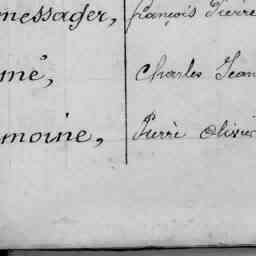 messager, françois Pierre
mé, Charles Jean
moine, Pierre Olivier